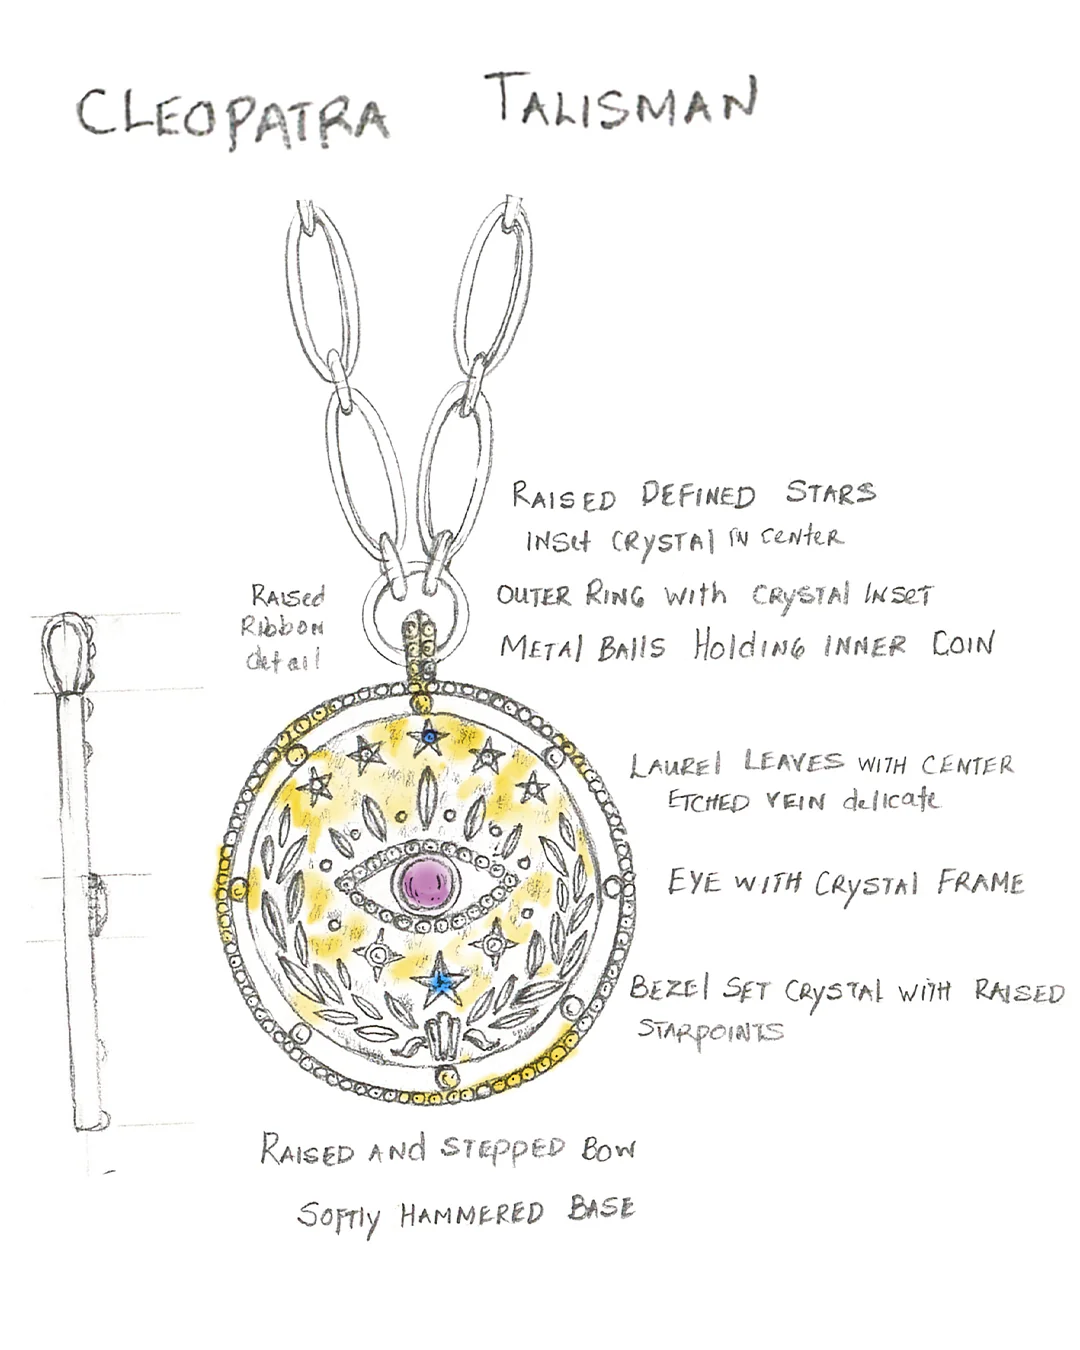 CLEOPATRA TALISMAN
RAISED DEFINED STARS
INSET CRYSTAl IN CENTER
Raised
Ribbon
detail
OUTER RING with CRYSTAl INSET
METAl BAllS HoldiNG INNER COIN
LAUREl LEAVES WITH CENTER
ETCHED VEIN delicate
EYE WITH CRYSTAl FRAME
BEZEl SET CRYSTAL WITH RAISED
STARPOINTS
RAISED ANd STEPPED BOW
SOFTly HAMMERED BASE